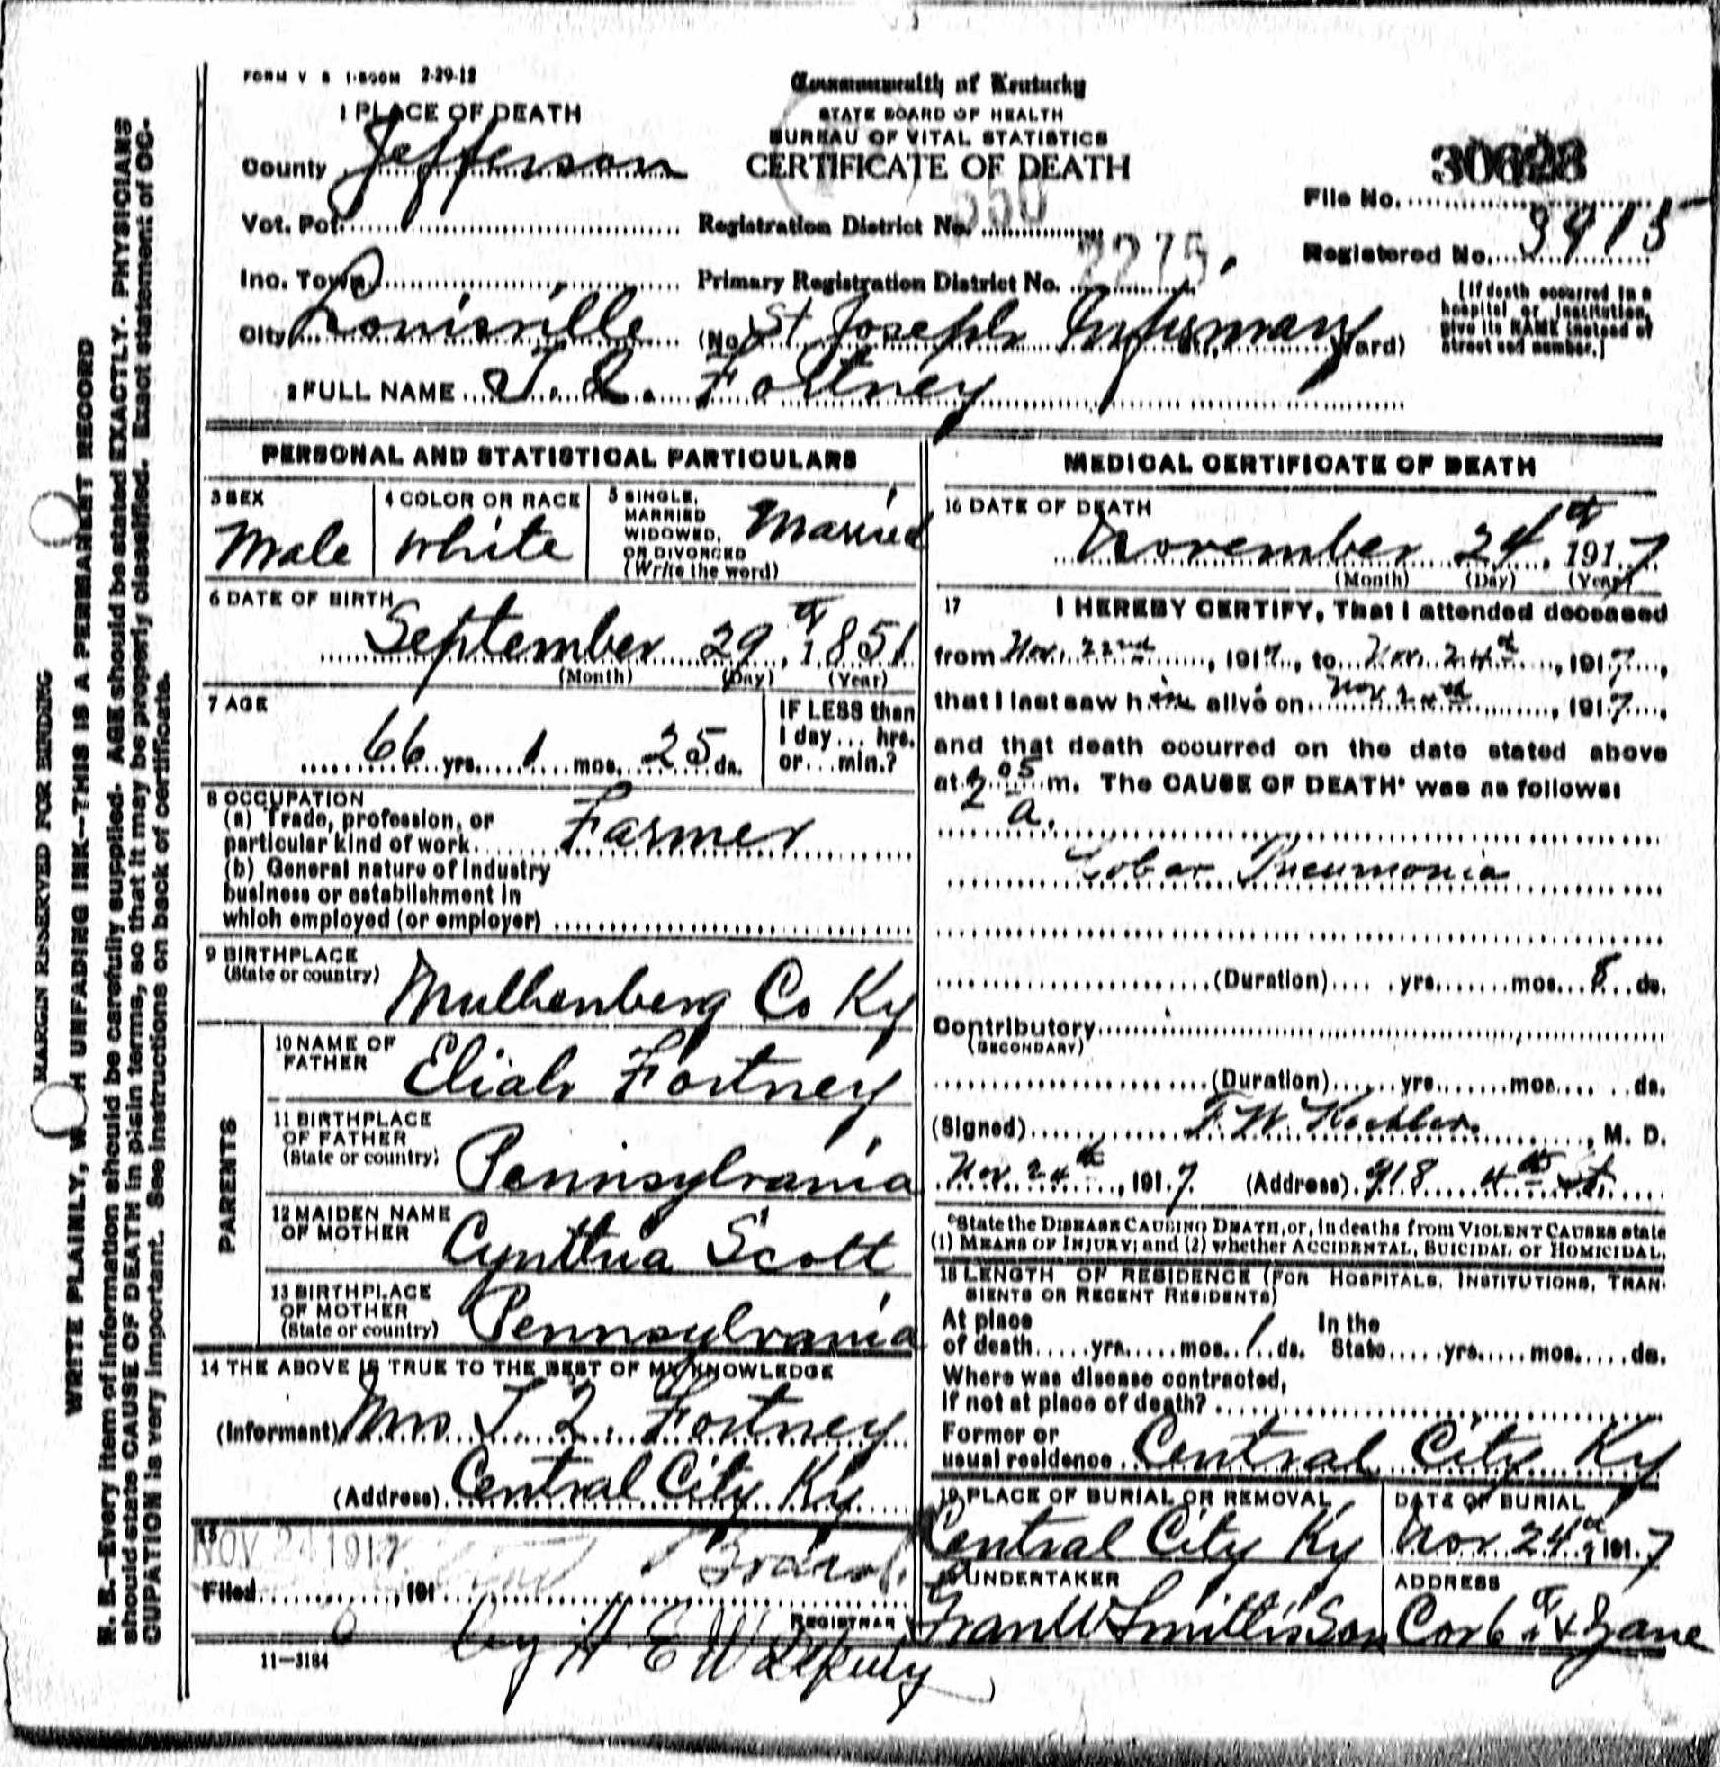 FORM V S 1-500M 2-29-12
Commonwealth of Kentucky
STATE BOARD OF HEALTH
BUREAU OF VITAL STATISTICS
CERTIFICATE OF DEATH
1 PLACE OF DEATH
County Jefferson
Vot. Pct.
Inc. Town
City Louisville
Registration District No. 550
Primary Registration District No. 2275.
(No. St Joseph Infirmary Ward)
File No.
Registered No. 3915
[If death occurred in a
hospital or institution,
give its NAME instead of
street and number.]
2 FULL NAME T. Q. Fortney
PERSONAL AND STATISTICAL PARTICULARS
3 SEX
Male
4 COLOR OR RACE
White
5 SINGLE,
MARRIED
WIDOWED,
OR DIVORCED
(Write the word)
Married
6 DATE OF BIRTH
September 29th, 1851
(Month) (Day) (Year)
7 AGE
66 yrs. 1 mos. 25 ds.
IF LESS than
1 day... hrs.
or...min.?
8 OCCUPATION
(a) Trade, profession, or
particular kind of work Farmer
(b) General nature of industry
business or establishment in
which employed (or employer)
9 BIRTHPLACE
(State or country)
Mulhenberg Co Ky
PARENTS
10 NAME OF
FATHER
Eliah Fortney
11 BIRTHPLACE
OF FATHER
(State or country)
Pennsylvania
12 MAIDEN NAME
OF MOTHER
Cynthia Scott
13 BIRTHPLACE
OF MOTHER
(State or country)
Pennsylvania
14 THE ABOVE IS TRUE TO THE BEST OF MY KNOWLEDGE
(Informant) Mrs T. Q. Fortney
(Address) Central City Ky
15
NOV 24 1917
Filed, 191
REGISTRAR
by H E W Deputy
11-3184
MEDICAL CERTIFICATE OF DEATH
16 DATE OF DEATH
November 24th, 1917
(Month) (Day) (Year)
17 I HEREBY CERTIFY, That I attended deceased
from Nov. 22nd, 1917, to Nov. 24th, 1917,
that I last saw him alive on Nov 24th, 1917,
and that death occurred on the date stated above
at 2 05 m. The CAUSE OF DEATH* was as follows:
a.
Lobar Pneumonia
(Duration) yrs. mos. 8 ds.
Contributory
(SECONDARY)
(Duration) yrs. mos. ds.
(Signed) F. W. Koehler, M. D.
Nov. 24th, 1917 (Address) 918 4th St
*State the DISEASE CAUSING DEATH, or, in deaths from VIOLENT CAUSES state
(1) MEANS OF INJURY; and (2) whether ACCIDENTAL, SUICIDAL or HOMICIDAL.
18 LENGTH OF RESIDENCE (FOR HOSPITALS, INSTITUTIONS, TRAN-
SIENTS OR RECENT RESIDENTS)
At place
of death yrs. mos. 1 ds.
In the
State yrs. mos. ds.
Where was disease contracted,
If not at place of death?
Former or
usual residence Central City Ky
19 PLACE OF BURIAL OR REMOVAL
Central City Ky
DATE OF BURIAL
Nov. 24th, 1917
20 UNDERTAKER
Frank Smith's Son
ADDRESS
Cor 6th & Zane
MARGIN RESERVED FOR BINDING
WRITE PLAINLY, W H UNFADING INK—THIS IS A PERMANENT RECORD
N. B.—Every item of information should be carefully supplied. AGE should be stated EXACTLY. PHYSICIANS
should state CAUSE OF DEATH in plain terms, so that it may be properly classified. Exact statement of OC-
CUPATION is very important. See instructions on back of certificate.